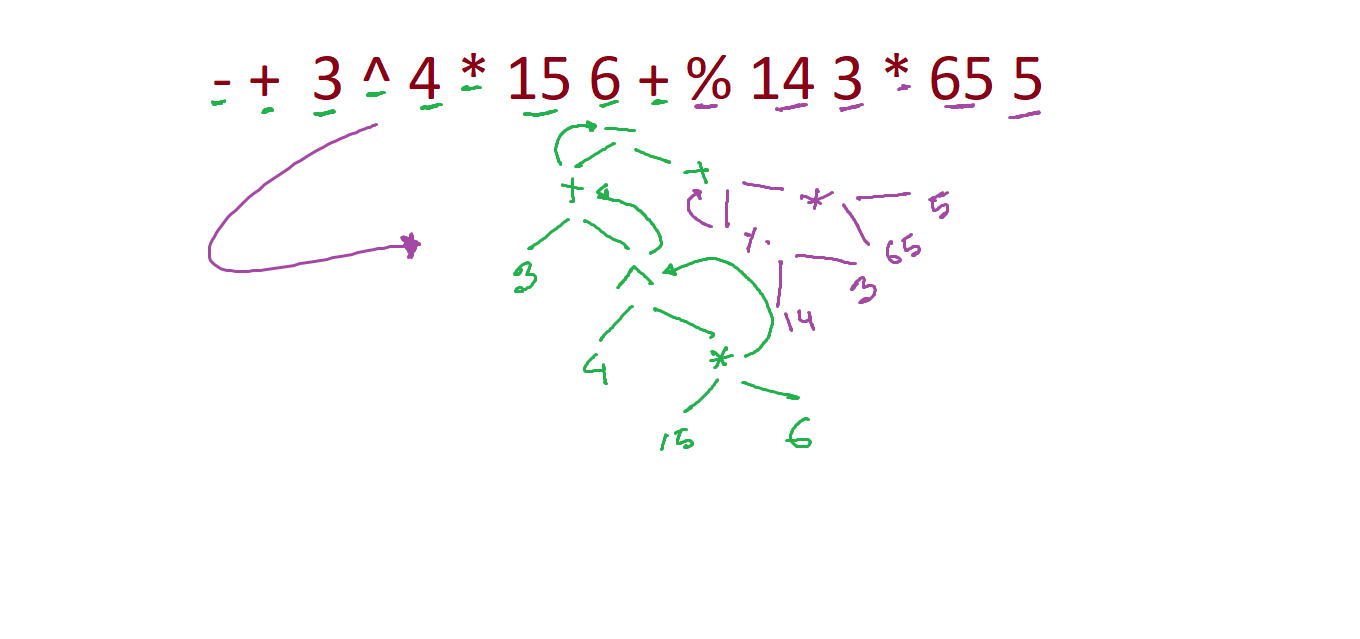 - + 3 ^ 4 * 15 6 + % 14 3 * 65 5
-
+ +
* 5
3 ^ % 65
3
14
4 *
15 6